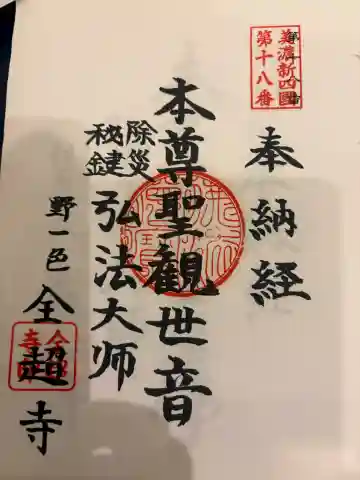 美濃新四國
第十八番
奉納経
本尊聖觀世音
除災
秘鍵
弘法大师
野一色
全超寺